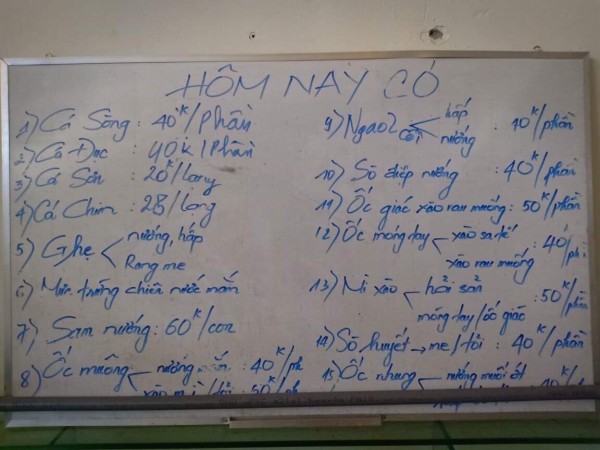 HÔM NAY CÓ
1) Cá Sòng : 40K/Phần
2) Cá Đục : 40K/Phần
3) Cá Sơn : 20K/lạng
4) Cá Chim : 28/lạng
5) Ghẹ nướng, hấp
Rang me
6) Mực trứng chiên nước mắm
7) Sam nướng : 60K/con
8) Ốc muỗng nướng mắm : 40K/ph
xào / tỏi : 50K/ph
9) Ngao2 cồi hấp
nướng : 40K/phần
10) Sò điệp nướng : 40K/phần
11) Ốc giác xào rau muống : 50K/phần
12) Ốc móng tay xào sa tế
xào rau muống : 40K/ph
13) Mì xào hải sản
móng tay/ốc giác : 50K/phần
14) Sò huyết me/tỏi : 40K/phần
15) Ốc nhung nướng muối ớt